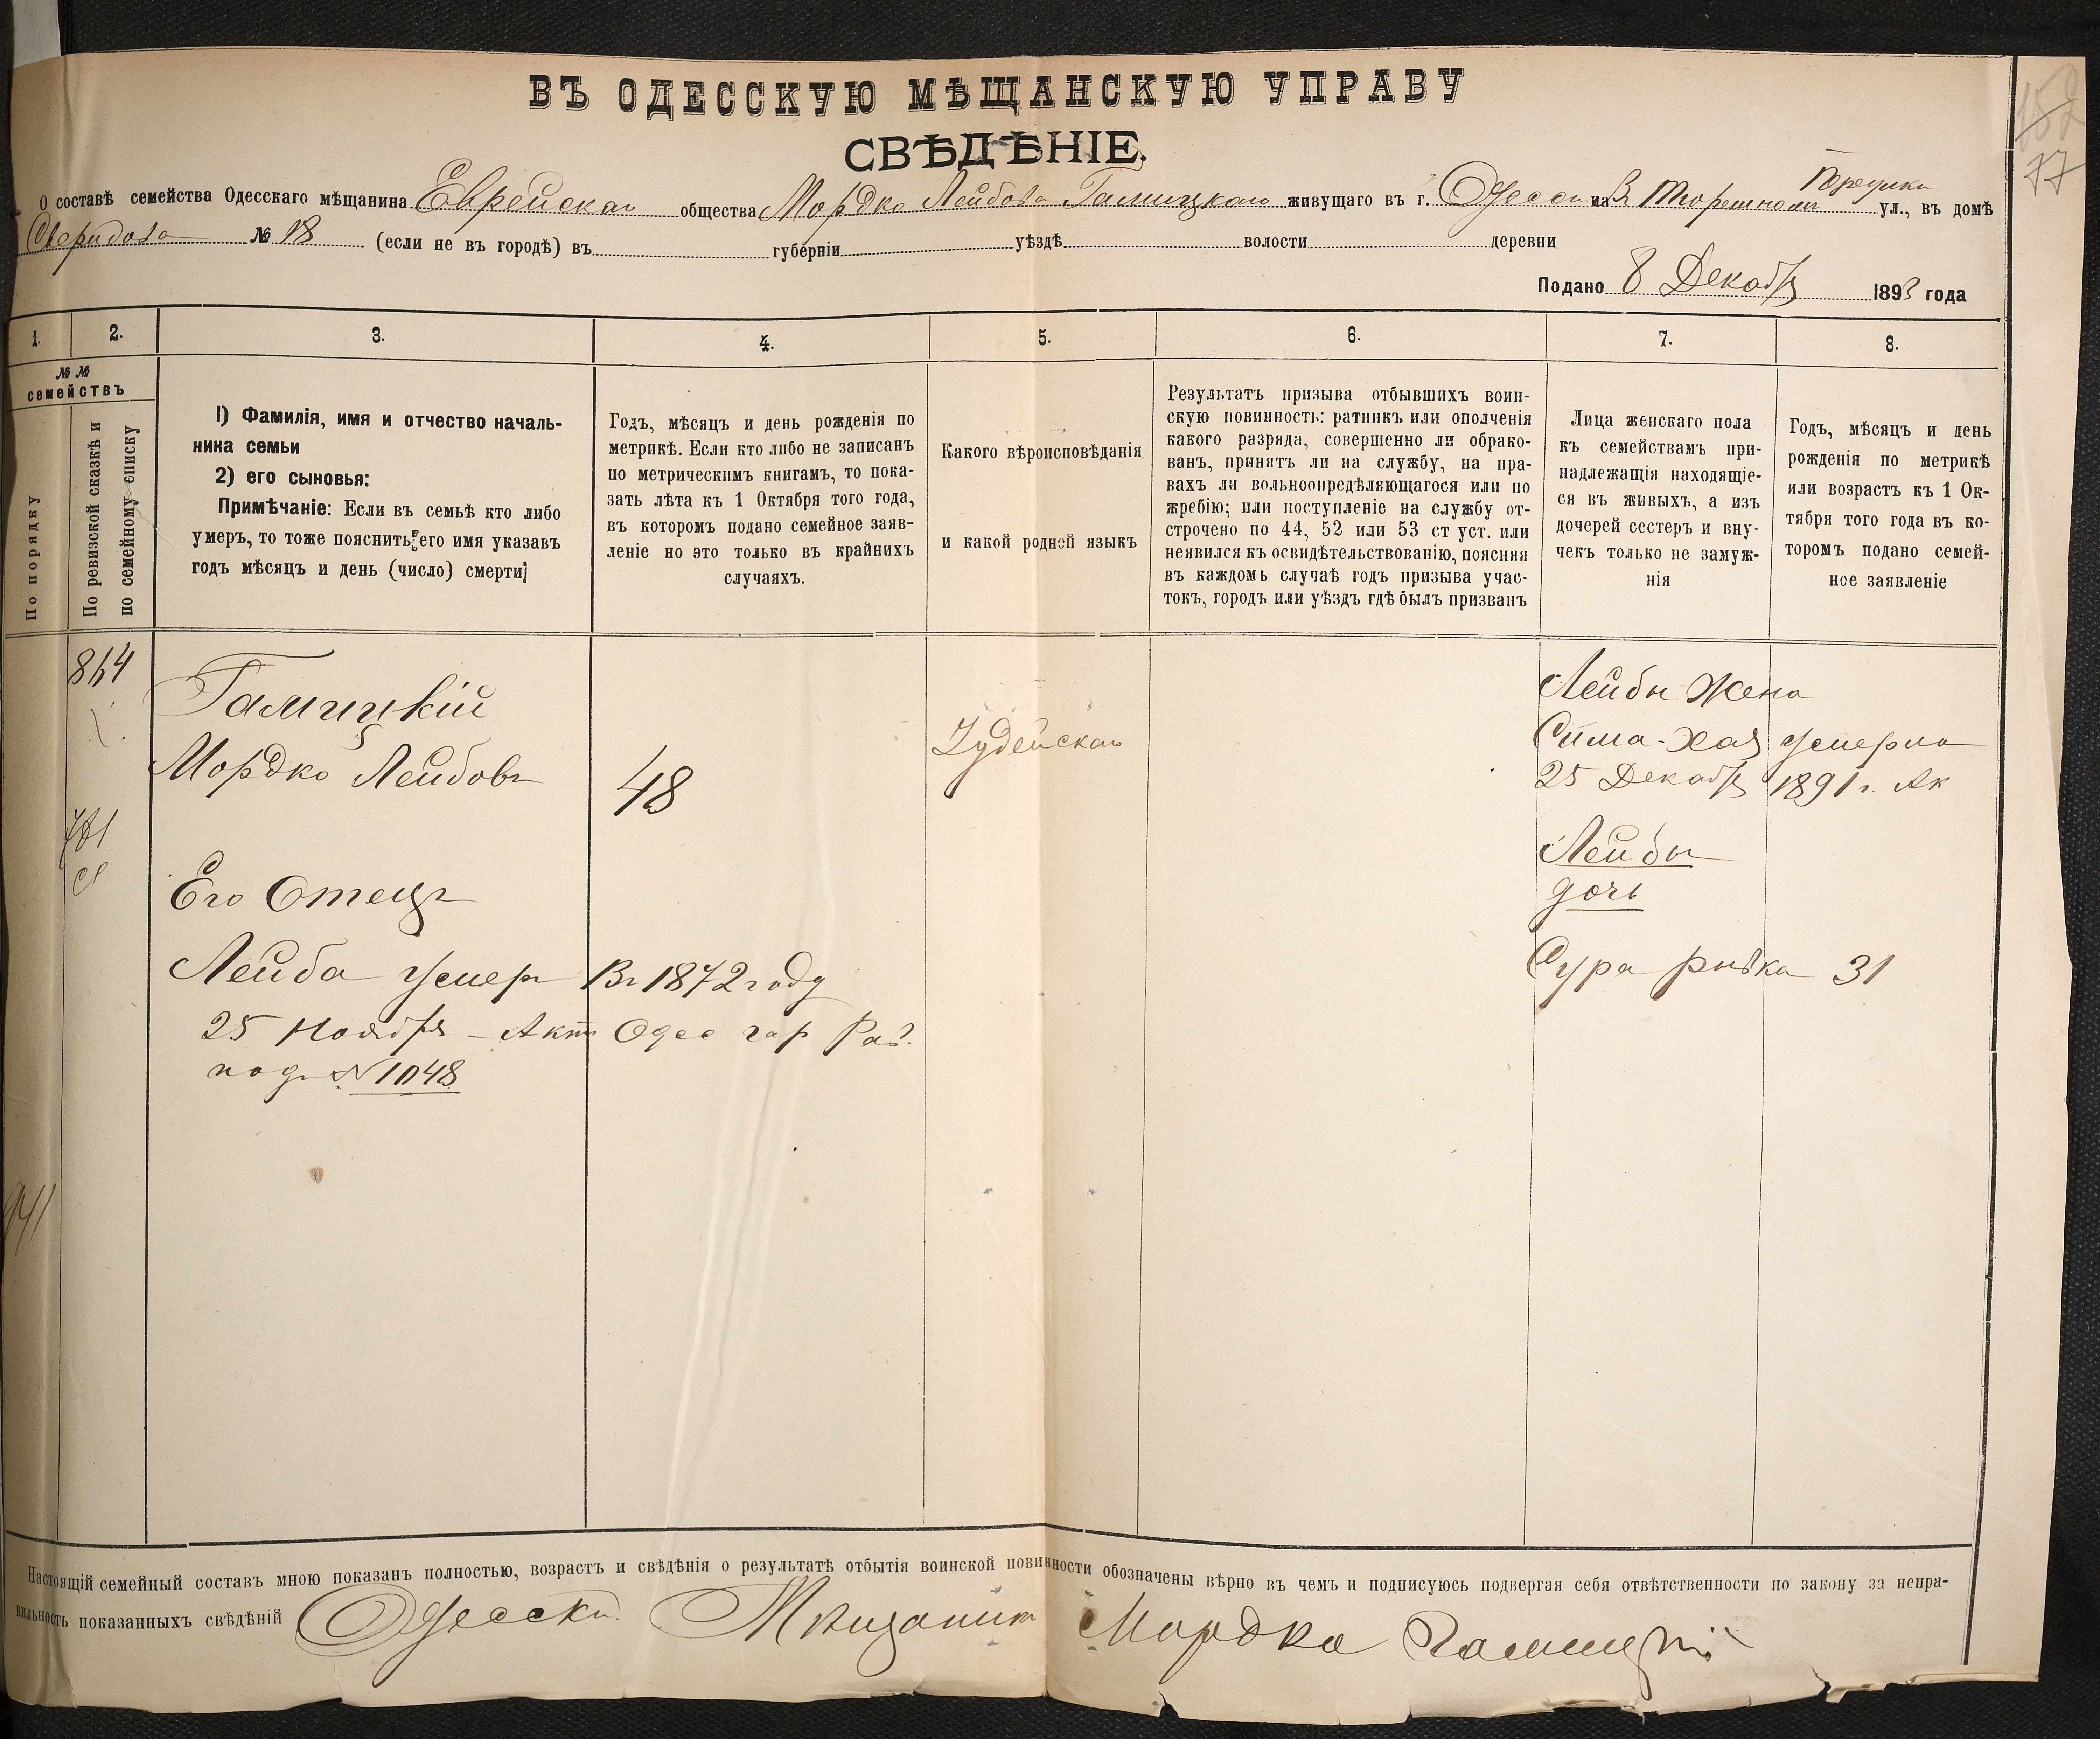 152
77
ВЪ ОДЕССКУЮ МѢЩАНСКУЮ УПРАВУ
СВѢДѢНІЕ.
О составѣ семейства Одесскаго мѣщанина Еврейскаго общества Мордко Лейбова Галицкаго живущаго въ г. Одессѣ на переулкѣ ул., въ домѣ
Свиридова № 18 (если не въ городѣ) въ губерніи уѣздѣ волости деревни
Подано 8 Декабря 1893 года
1. 2. 3. 4. 5. 6. 7. 8.
№№ семействъ
По порядку
По ревизской сказкѣ и по семейному списку
1) Фамилія, имя и отчество началь-
ника семьи
2) его сыновья:
Примѣчаніе: Если въ семьѣ кто либо
умеръ, то тоже пояснить его имя указавъ
годъ мѣсяцъ и день (число) смерти
Годъ, мѣсяцъ и день рожденія по
метрикѣ. Если кто либо не записанъ
по метрическимъ книгамъ, то пока-
зать лѣта къ 1 Октября того года,
въ которомъ подано семейное заяв-
леніе но это только въ крайнихъ
случаяхъ.
Какого вѣроисповѣданія
и какой родной языкъ
Результатъ призыва отбывшихъ воин-
скую повинность: ратникъ или ополченія
какого разряда, совершенно ли обрако-
ванъ, принятъ ли на службу, на пра-
вахъ ли вольноопредѣляющагося или по
жребію; или поступленіе на службу от-
строчено по 44, 52 или 53 ст уст. или
неявился къ освидѣтельствованію, поясняя
въ каждомъ случаѣ годъ призыва учас-
токъ, городъ или уѣздъ гдѣ былъ призванъ
Лица женскаго пола
къ семействамъ при-
надлежащія находящіе-
ся въ живыхъ, а изъ
дочерей сестеръ и вну-
чекъ только не замуж-
нія
Годъ, мѣсяцъ и день
рожденія по метрикѣ
или возрастъ къ 1 Ок-
тября того года въ ко-
торомъ подано семей-
ное заявленіе
Галицкій
Мордко Лейбовъ 48
Іудейскаго
Его Отецъ
Лейба умеръ Въ 1872 году
25 Ноября - Актъ Одес гор Рав.
подъ № 1048
941
Лейбы жена
Сима-Хая умерла
25 Декабря 1891 г. Ак
Лейбы
дочь
Сура Рывка 31
Настоящій семейный составъ мною показанъ полностью, возрастъ и свѣдѣнія о результатѣ отбытія воинской повинности обозначены вѣрно въ чемъ и подписуюсь подвергая себя отвѣтственности по закону за непра-
вильность показанныхъ свѣдѣній Одесскі Мѣщанинъ Мордко Галицкій